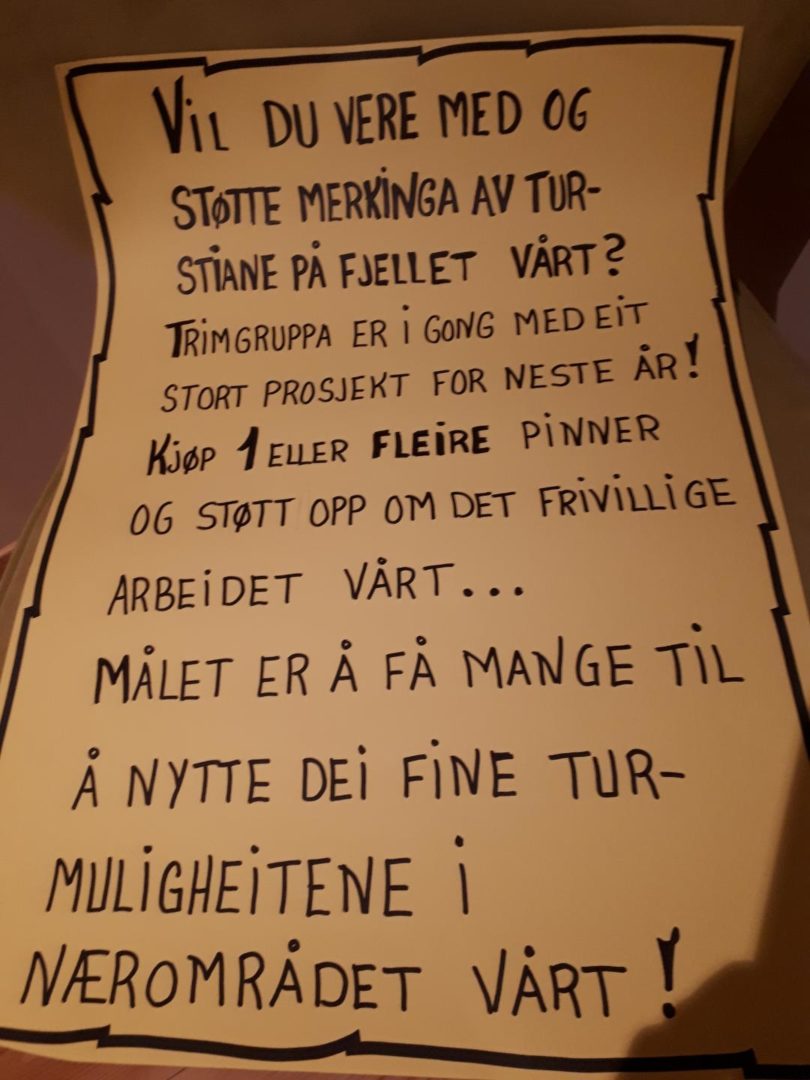 VIL DU VERE MED OG
STØTTE MERKINGA AV TUR-
STIANE PÅ FJELLET VÅRT?
TRIMGRUPPA ER I GONG MED EIT
STORT PROSJEKT FOR NESTE ÅR!
KJØP 1 ELLER FLEIRE PINNER
OG STØTT OPP OM DET FRIVILLIGE
ARBEIDET VÅRT...
MÅLET ER Å FÅ MANGE TIL
Å NYTTE DEI FINE TUR-
MULIGHEITENE I
NÆROMRÅDET VÅRT!